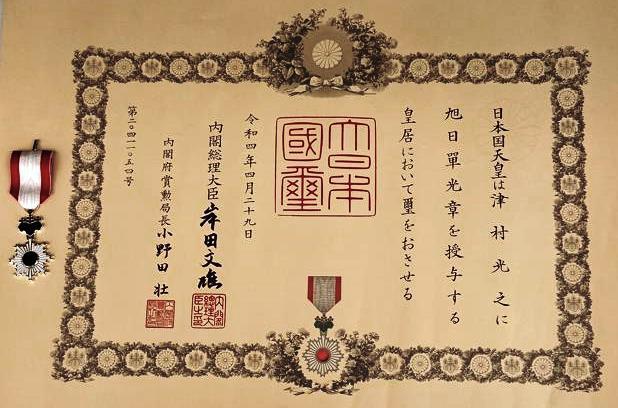 日本国天皇は津村光之に
旭日單光章を授与する
皇居において璽をおさせる
大日本
國璽
令和四年四月二十九日
内閣総理大臣 岸田文雄
内閣府賞勲局長 小野田 壮
第二〇四一一〇五四号